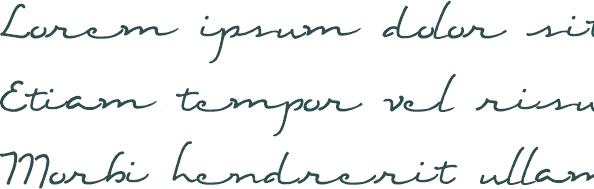 Lorem ipsum dolor sit
Etiam tempor vel risu
Morbi hendrerit ullam